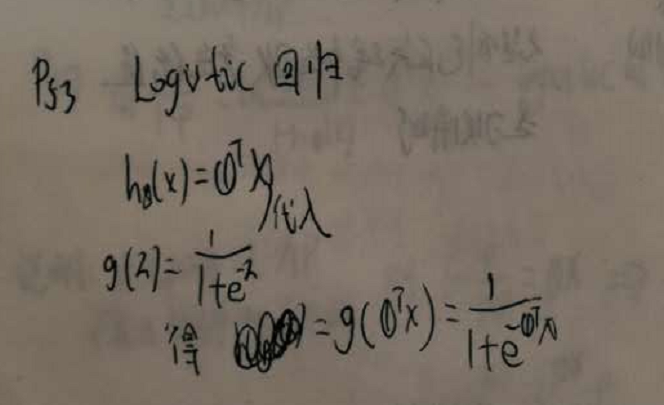 P53 Logistic 回归
h_θ(x)=θ^T x 代入
g(z)=1/(1+e^-z)
得 =g(θ^T x)=1/(1+e^-θ^T x)